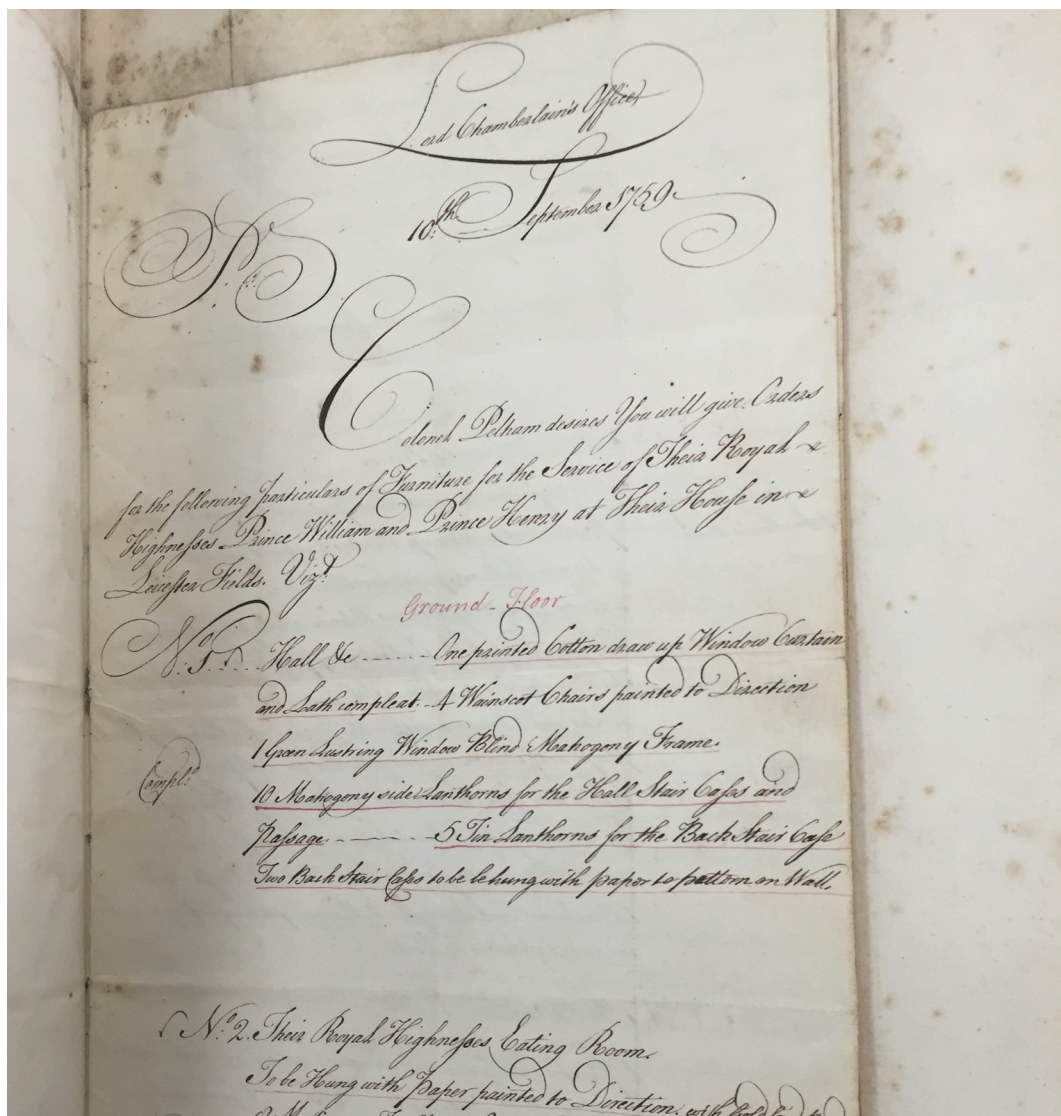 Lord Chamberlain's Office
10.th September 1759
Sr.
Colonel Pelham desires You will give Orders
for the following particulars of Furniture for the Service of Their Royal
Highnesses Prince William and Prince Henry at Their House in
Leicester Fields. Vizt.
Ground-Floor
No. 1. Hall &c ------ One printed Cotton draw up Window Curtain
and Lath compleat. 4 Wainscot Chairs painted to Direction
1 Green Lustring Window Blind Mahogony Frame.
Compld.
10 Mahogony side Lanthorns for the Hall Stair Cases and
Passage ------ 5 Tin Lanthorns for the Back Stair Case
Two Back Stair Cases to be hung with paper to pattern on Wall.
No. 2. Their Royal Highnesses Eating Room.
To be Hung with Paper painted to Direction. with